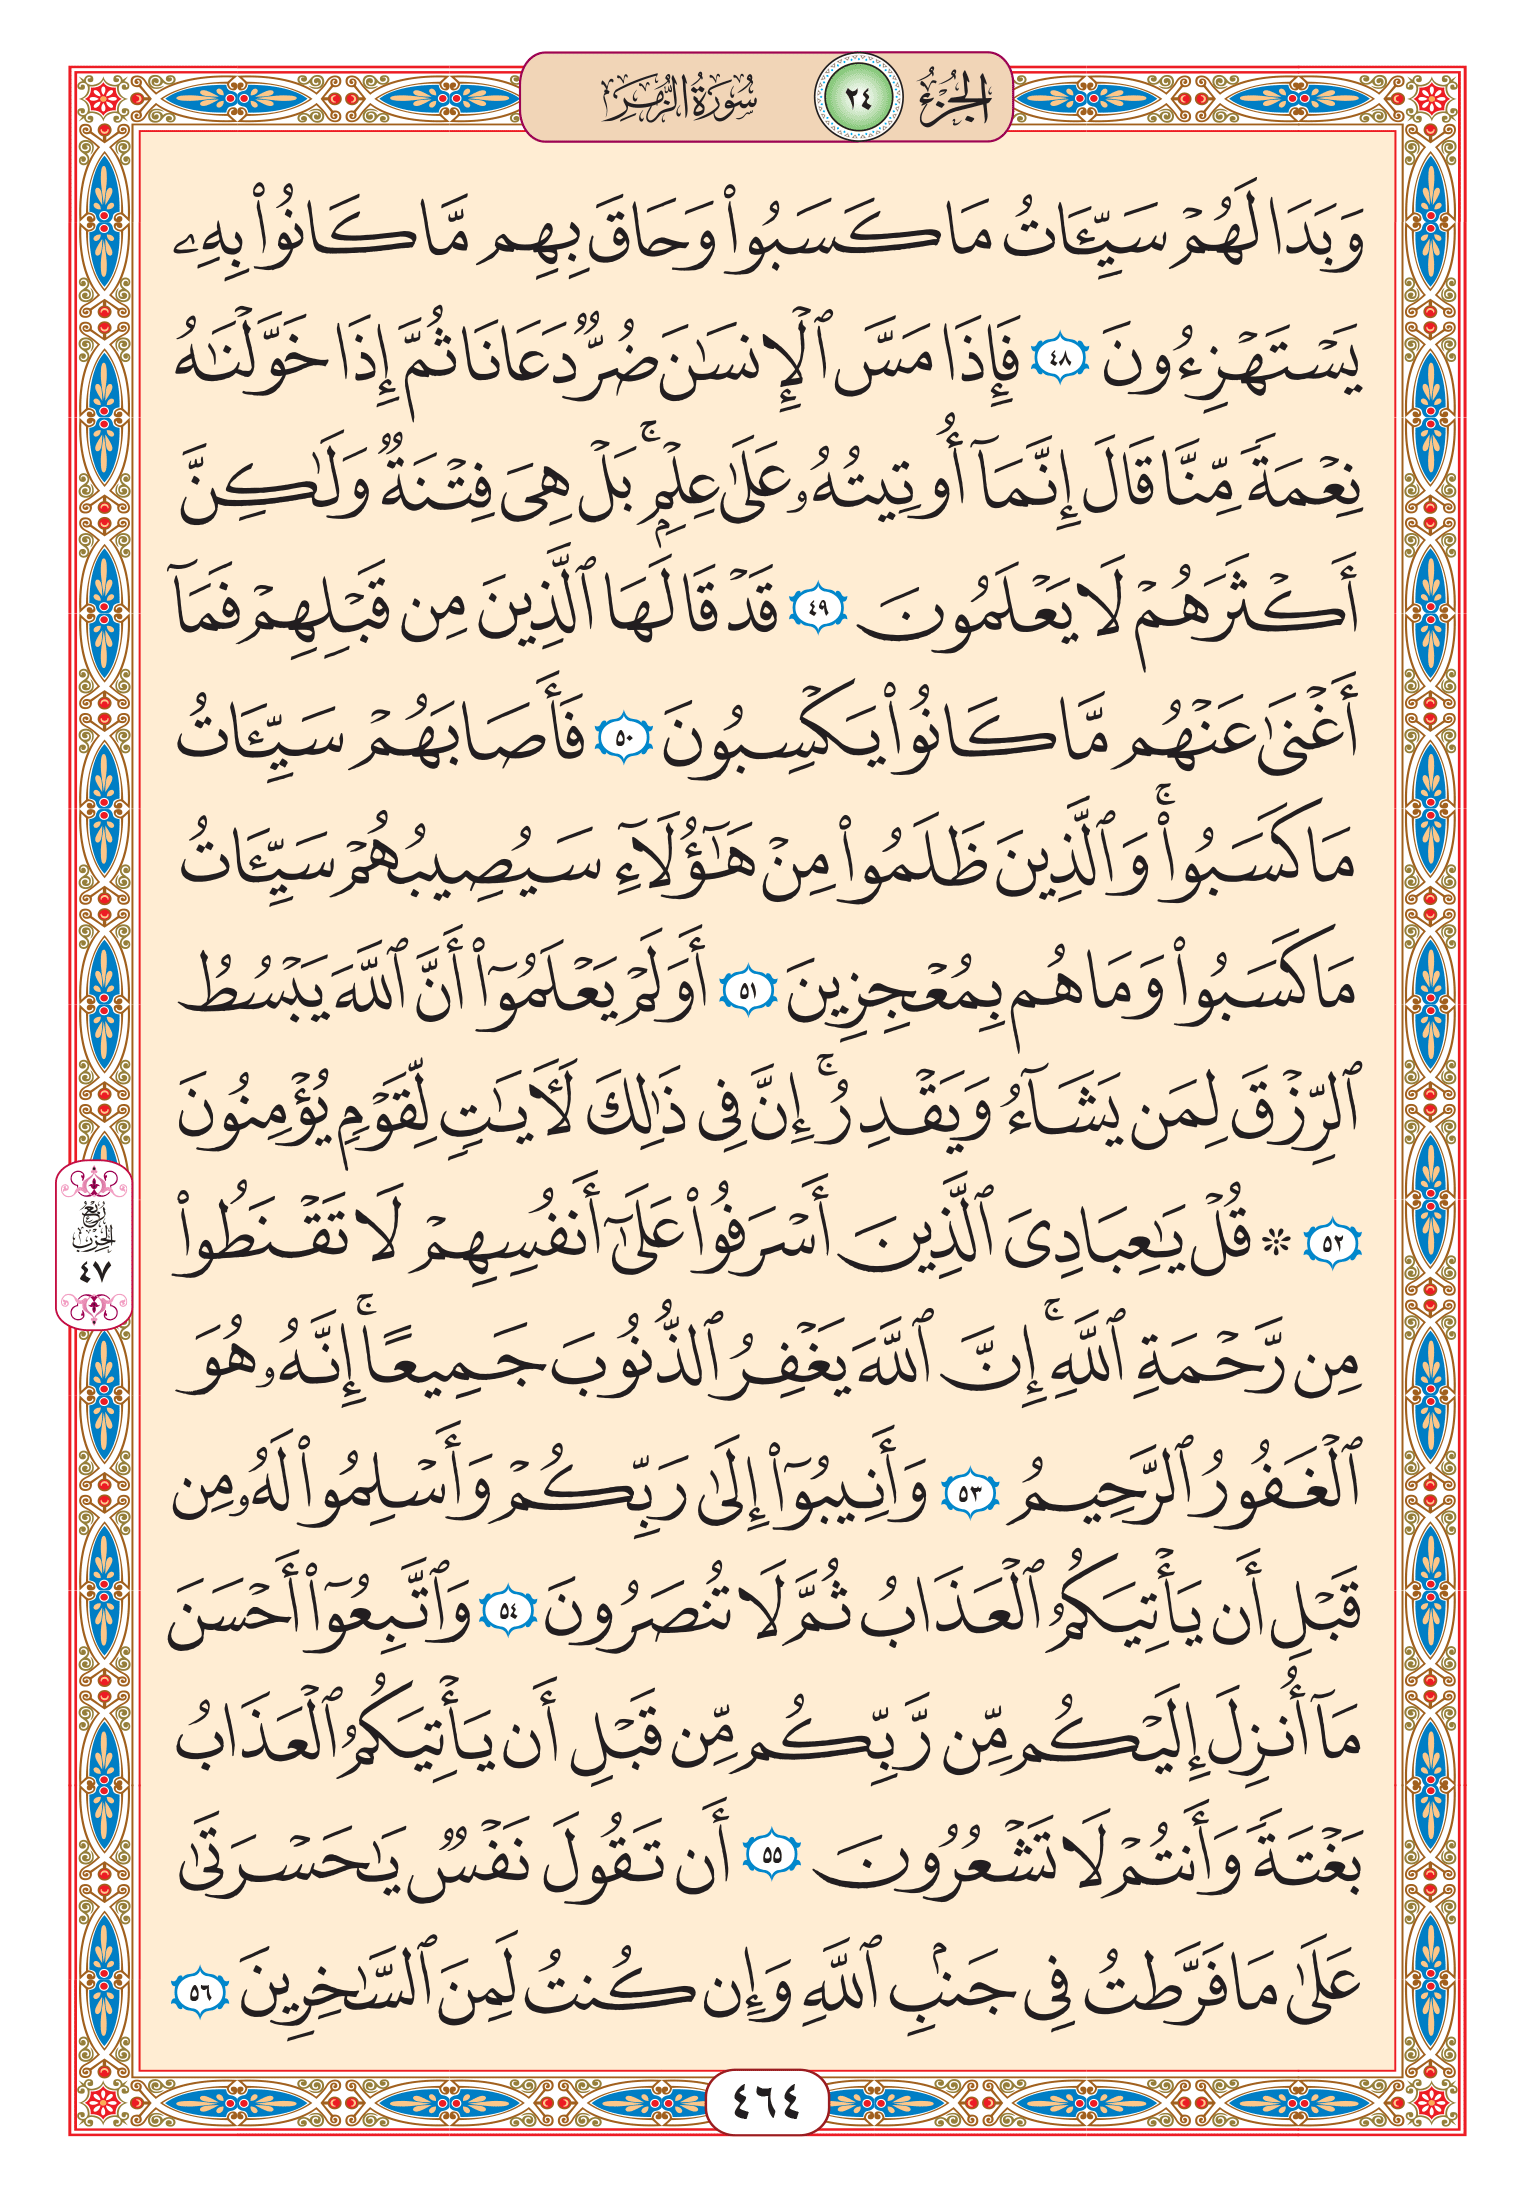 الجزء ٢٤ سورة الزمر
وَبَدَا لَهُمْ سَيِّـَٔاتُ مَا كَسَبُوا۟ وَحَاقَ بِهِم مَّا كَانُوا۟ بِهِۦ
يَسْتَهْزِءُونَ ٤٨ فَإِذَا مَسَّ ٱلْإِنسَٰنَ ضُرٌّ دَعَانَا ثُمَّ إِذَا خَوَّلْنَٰهُ
نِعْمَةً مِّنَّا قَالَ إِنَّمَآ أُوتِيتُهُۥ عَلَىٰ عِلْمٍۭ ۚ بَلْ هِىَ فِتْنَةٌ وَلَٰكِنَّ
أَكْثَرَهُمْ لَا يَعْلَمُونَ ٤٩ قَدْ قَالَهَا ٱلَّذِينَ مِن قَبْلِهِمْ فَمَآ
أَغْنَىٰ عَنْهُم مَّا كَانُوا۟ يَكْسِبُونَ ٥٠ فَأَصَابَهُمْ سَيِّـَٔاتُ
مَا كَسَبُوا۟ ۚ وَٱلَّذِينَ ظَلَمُوا۟ مِنْ هَٰٓؤُلَآءِ سَيُصِيبُهُمْ سَيِّـَٔاتُ
مَا كَسَبُوا۟ وَمَا هُم بِمُعْجِزِينَ ٥١ أَوَلَمْ يَعْلَمُوٓا۟ أَنَّ ٱللَّهَ يَبْسُطُ
ٱلرِّزْقَ لِمَن يَشَآءُ وَيَقْدِرُ ۚ إِنَّ فِى ذَٰلِكَ لَـَٔايَٰتٍ لِّقَوْمٍ يُؤْمِنُونَ
٥٢ ۞ قُلْ يَٰعِبَادِىَ ٱلَّذِينَ أَسْرَفُوا۟ عَلَىٰٓ أَنفُسِهِمْ لَا تَقْنَطُوا۟
مِن رَّحْمَةِ ٱللَّهِ ۚ إِنَّ ٱللَّهَ يَغْفِرُ ٱلذُّنُوبَ جَمِيعًا ۚ إِنَّهُۥ هُوَ
ٱلْغَفُورُ ٱلرَّحِيمُ ٥٣ وَأَنِيبُوٓا۟ إِلَىٰ رَبِّكُمْ وَأَسْلِمُوا۟ لَهُۥ مِن
قَبْلِ أَن يَأْتِيَكُمُ ٱلْعَذَابُ ثُمَّ لَا تُنصَرُونَ ٥٤ وَٱتَّبِعُوٓا۟ أَحْسَنَ
مَآ أُنزِلَ إِلَيْكُم مِّن رَّبِّكُم مِّن قَبْلِ أَن يَأْتِيَكُمُ ٱلْعَذَابُ
بَغْتَةً وَأَنتُمْ لَا تَشْعُرُونَ ٥٥ أَن تَقُولَ نَفْسٌ يَٰحَسْرَتَىٰ
عَلَىٰ مَا فَرَّطتُ فِى جَنۢبِ ٱللَّهِ وَإِن كُنتُ لَمِنَ ٱلسَّٰخِرِينَ ٥٦
ربع
الحزب
٤٧
٤٦٤